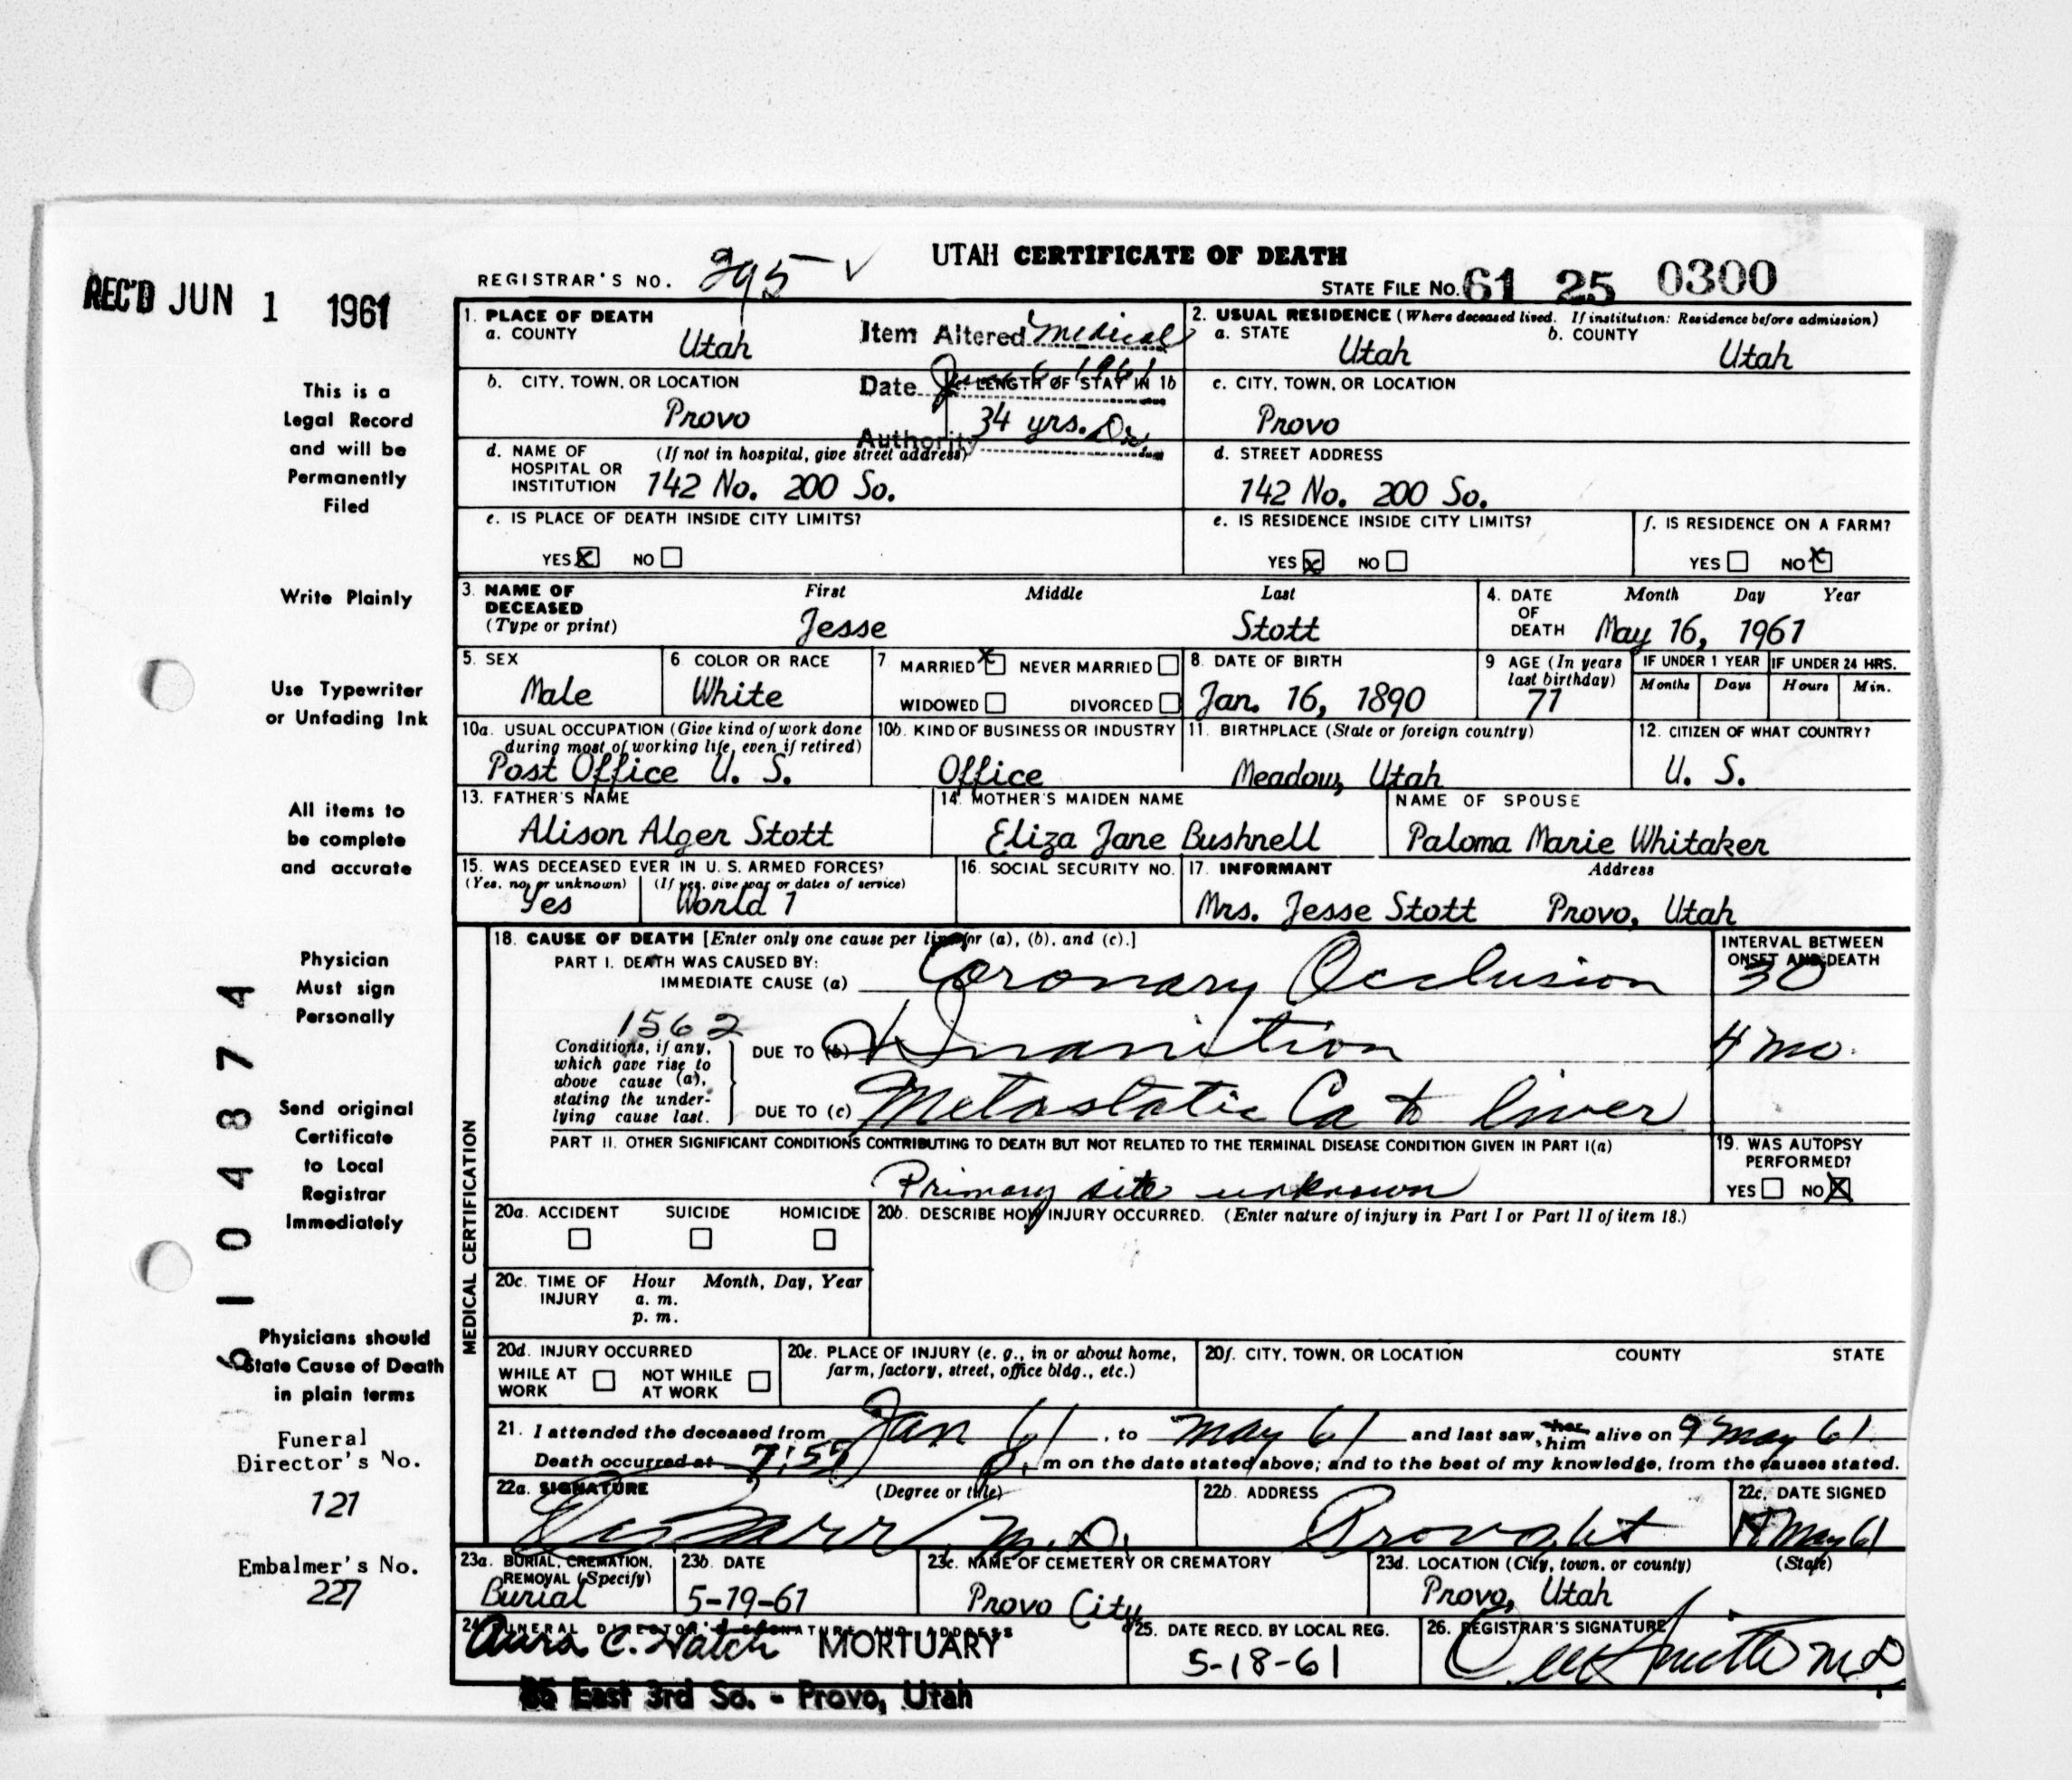 UTAH CERTIFICATE OF DEATH
REC'D JUN 1 1961
REGISTRAR'S NO. 295 ✓
STATE FILE NO. 61 25 0300
This is a
Legal Record
and will be
Permanently
Filed
Write Plainly
Use Typewriter
or Unfading Ink
All items to
be complete
and accurate
Physician
Must sign
Personally
Send original
Certificate
to Local
Registrar
Immediately
Physicians should
State Cause of Death
in plain terms
Funeral
Director's No.
121
Embalmer's No.
227
6104874
1. PLACE OF DEATH
a. COUNTY
Utah
Item Altered Medical
Date June 6 1961
Authority Dr.
2. USUAL RESIDENCE (Where deceased lived. If institution: Residence before admission)
a. STATE
Utah
b. COUNTY
Utah
b. CITY, TOWN, OR LOCATION
Provo
c. LENGTH OF STAY IN 1b
34 yrs.
c. CITY, TOWN, OR LOCATION
Provo
d. NAME OF HOSPITAL OR INSTITUTION
(If not in hospital, give street address)
142 No. 200 So.
d. STREET ADDRESS
142 No. 200 So.
e. IS PLACE OF DEATH INSIDE CITY LIMITS?
YES X NO
e. IS RESIDENCE INSIDE CITY LIMITS?
YES X NO
f. IS RESIDENCE ON A FARM?
YES NO X
3. NAME OF DECEASED
(Type or print)
First Middle Last
Jesse Stott
4. DATE OF DEATH
Month Day Year
May 16, 1961
5. SEX
Male
6. COLOR OR RACE
White
7 MARRIED X NEVER MARRIED
WIDOWED DIVORCED
8. DATE OF BIRTH
Jan. 16, 1890
9 AGE (In years last birthday)
71
IF UNDER 1 YEAR
Months Days
IF UNDER 24 HRS.
Hours Min.
10a. USUAL OCCUPATION (Give kind of work done during most of working life, even if retired)
Post Office U. S.
10b. KIND OF BUSINESS OR INDUSTRY
Office
11. BIRTHPLACE (State or foreign country)
Meadow, Utah
12. CITIZEN OF WHAT COUNTRY?
U. S.
13. FATHER'S NAME
Alison Alger Stott
14. MOTHER'S MAIDEN NAME
Eliza Jane Bushnell
NAME OF SPOUSE
Paloma Marie Whitaker
15. WAS DECEASED EVER IN U. S. ARMED FORCES?
(Yes, no, or unknown) (If yes, give war or dates of service)
Yes World 1
16. SOCIAL SECURITY NO.
17. INFORMANT Address
Mrs. Jesse Stott Provo, Utah
MEDICAL CERTIFICATION
18. CAUSE OF DEATH [Enter only one cause per line for (a), (b), and (c).]
PART I. DEATH WAS CAUSED BY:
IMMEDIATE CAUSE (a) Coronary Occlusion
INTERVAL BETWEEN ONSET AND DEATH
30
1562
Conditions, if any, which gave rise to above cause (a), stating the underlying cause last.
DUE TO (b) Inanition
4 mo.
DUE TO (c) Metastatic Ca to liver
PART II. OTHER SIGNIFICANT CONDITIONS CONTRIBUTING TO DEATH BUT NOT RELATED TO THE TERMINAL DISEASE CONDITION GIVEN IN PART I(a)
Primary site unknown
19. WAS AUTOPSY PERFORMED?
YES NO X
20a. ACCIDENT SUICIDE HOMICIDE
20b. DESCRIBE HOW INJURY OCCURRED. (Enter nature of injury in Part I or Part II of item 18.)
20c. TIME OF INJURY
Hour Month, Day, Year
a. m.
p. m.
20d. INJURY OCCURRED
WHILE AT WORK NOT WHILE AT WORK
20e. PLACE OF INJURY (e. g., in or about home, farm, factory, street, office bldg., etc.)
20f. CITY, TOWN, OR LOCATION COUNTY STATE
21. I attended the deceased from Jan 61, to May 61 and last saw her him alive on 9 May 61
Death occurred at 7:59 P. m on the date stated above; and to the best of my knowledge, from the causes stated.
22a. SIGNATURE (Degree or title)
M.D.
22b. ADDRESS
Provo Ut
22c. DATE SIGNED
May 61
23a. BURIAL, CREMATION, REMOVAL (Specify)
Burial
23b. DATE
5-19-61
23c. NAME OF CEMETERY OR CREMATORY
Provo City
23d. LOCATION (City, town, or county) (State)
Provo, Utah
24. FUNERAL DIRECTOR'S SIGNATURE AND ADDRESS
Aura C. Hatch MORTUARY
85 East 3rd So. - Provo, Utah
25. DATE RECD. BY LOCAL REG.
5-18-61
26. REGISTRAR'S SIGNATURE
Smith MD